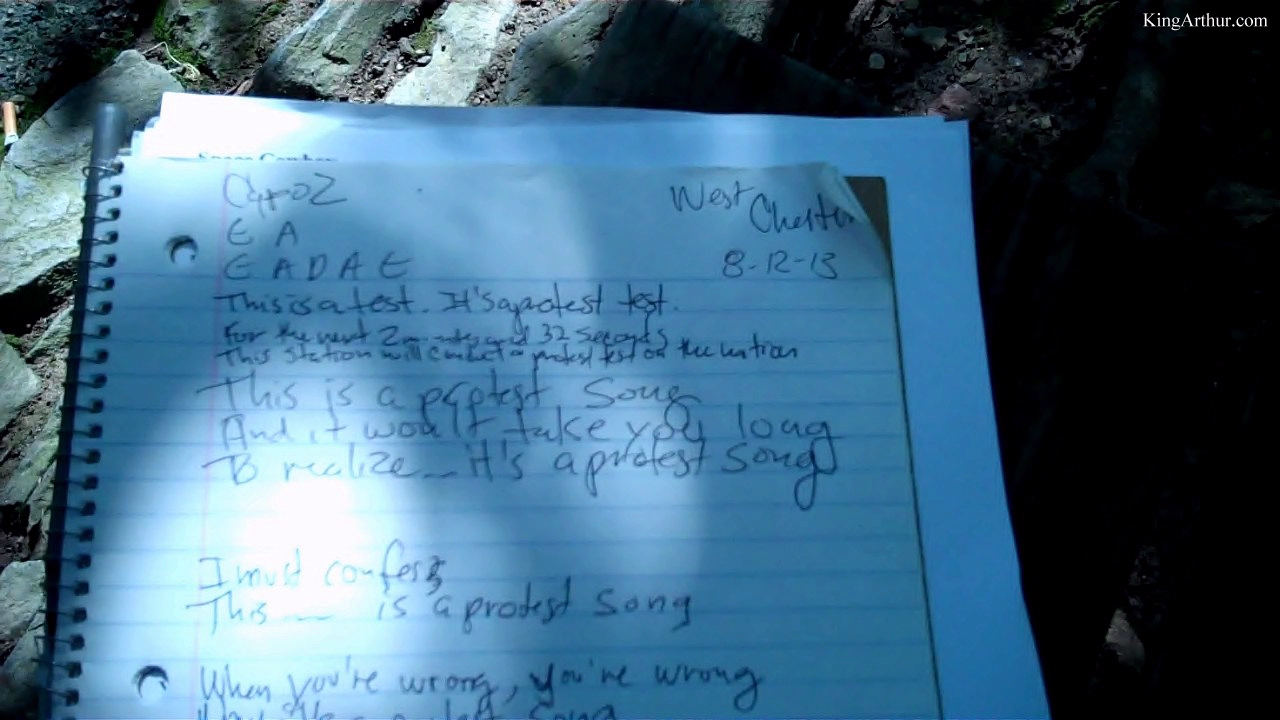 KingArthur.com
West Chester
8-12-13
E A
E A D A E
This is a test. It's a protest test.
For the next 2 minutes and 32 seconds
This station will conduct a protest test on the nation
This is a protest song
And it won't take you long
To realize__ it's a protest song
I must confess
This __ is a protest song
When you're wrong, you're wrong
song